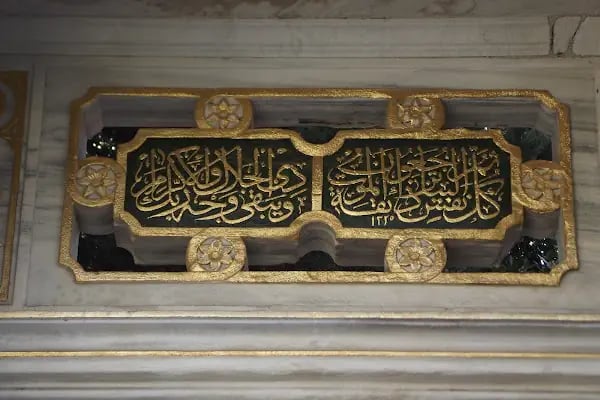 كل نفس ذائقة الموت
١٢٢٠
ويبقى وجه ربك ذو الجلال والاكرام